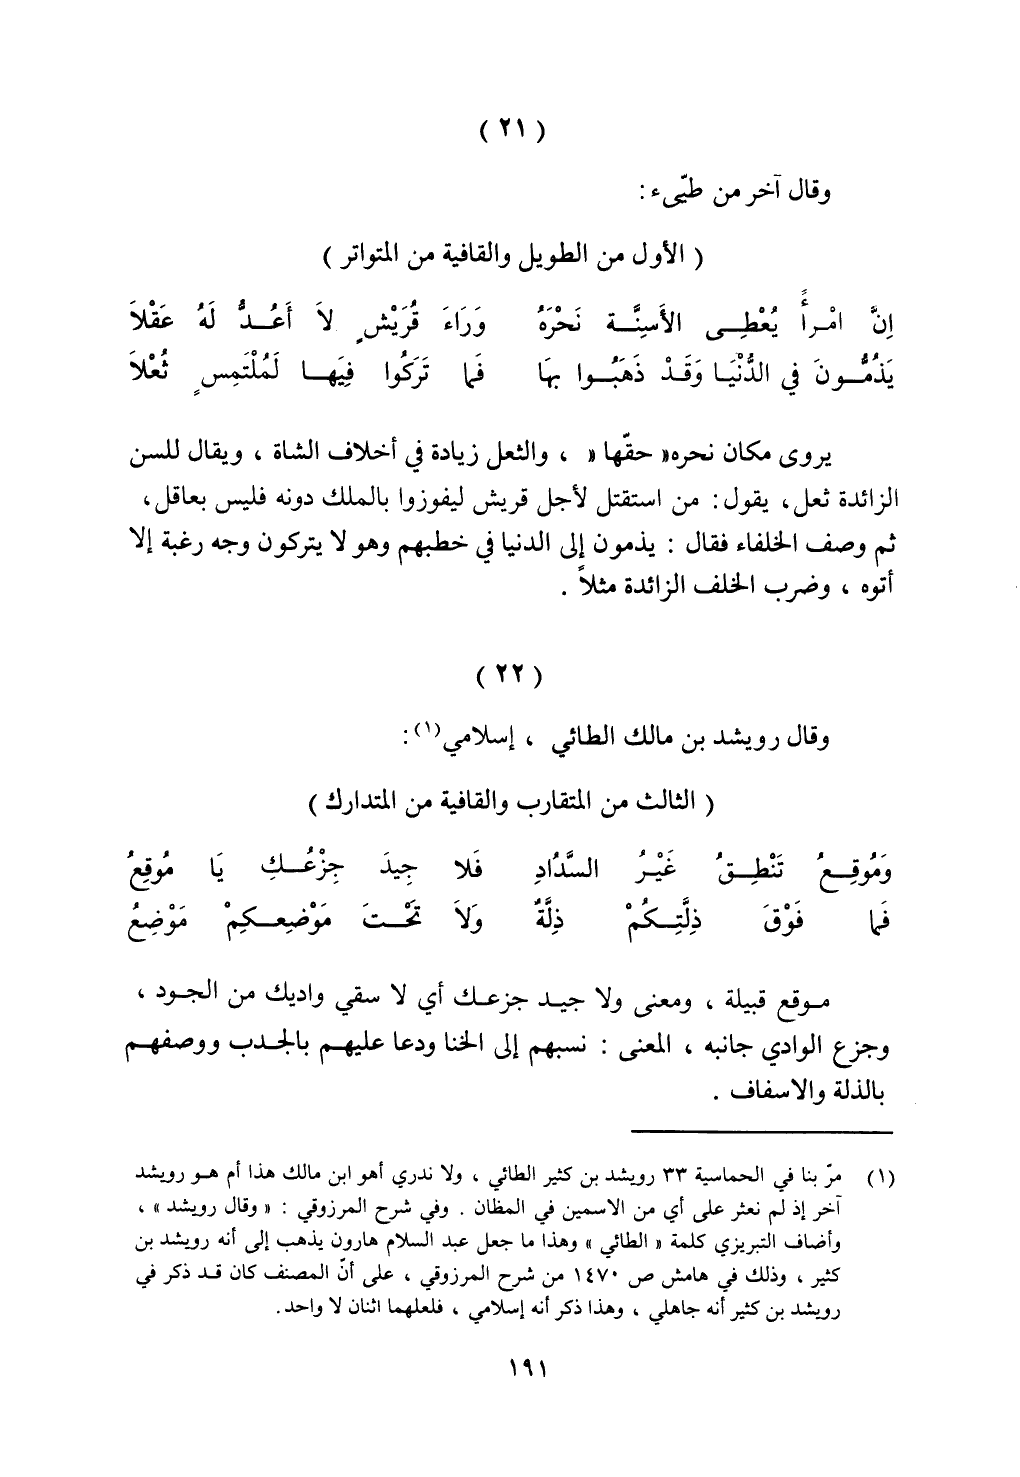 ( ٢١ )
وقال آخر من طيّىء :
( الأول من الطويل والقافية من المتواتر )
إِنَّ امْرأً يُعْطِـى الأَسِنَّـةَ نَحْرَهُ وَرَاءَ قُرَيْشٍ لاَ أَعُـدُّ لَهُ عَقْلاَ
يَذُمُّـونَ فِي الدُّنْيَـا وَقَدْ ذَهَبُـوا بِهَا فَمَا تَرَكُوا فِيَهـا لَمُلْتَمِسٍ ثُعْلاَ
يروى مكان نحره« حقّها » ، والثعل زيادة في أخلاف الشاة ، ويقال للسن
الزائدة ثعل، يقول : من استقتل لأجل قريش ليفوزوا بالملك دونه فليس بعاقل،
ثم وصف الخلفاء فقال : يذمون إلى الدنيا في خطبهم وهو لا يتركون وجه رغبة إلا
أتوه ، وضرب الخلف الزائدة مثلاً .
( ٢٢ )
وقال رويشد بن مالك الطائي ، إسلامي(١) :
( الثالث من المتقارب والقافية من المتدارك )
وَمُوقِـعُ تَنْطِـقُ غَيْـرُ السَّدَادِ فَلا جِيدَ جِزْعُـكِ يَا مُوقِعُ
فَمَا فَوْقَ ذِلَّتِـكُمْ ذِلَّةٌ وَلاَ تَحْـتَ مَوْضِعـكِمْ مَوْضِعُ
مـوقع قبيلة ، ومعنى ولا جيـد جزعـك أي لا سقي واديك من الجـود ،
وجزع الوادي جانبه ، المعنى : نسبهم إلى الخنا ودعا عليهـم بالجدب ووصفهـم
بالذلة والاسفاف .
(١) مرّ بنا في الحماسية ٣٣ رويشد بن كثير الطائي ، ولا ندري أهو ابن مالك هذا أم هـو رويشد
آخر إذ لم نعثر على أي من الاسمين في المظان . وفي شرح المرزوقي : « وقال رويشد » ،
وأضاف التبريزي كلمة « الطائي » وهذا ما جعل عبد السلام هارون يذهب إلى أنه رويشد بن
كثير ، وذلك في هامش ص ١٤٧٠ من شرح المرزوقي ، على أنّ المصنف كان قـد ذكر في
رويشد بن كثير أنه جاهلي ، وهذا ذكر أنه إسلامي ، فلعلهما اثنان لا واحد.
١٩١